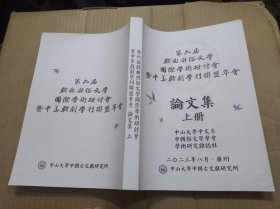 第九届
戲曲與俗文學
國際學術研討會
暨中美戲劇學刊聯盟年會
中山大學中國古文獻研究所
第九届戲曲與俗文學國際學術研討會
暨中美戲劇學刊聯盟年會 論文集 上
第九届
戲曲與俗文學
國際學術研討會
暨中美戲劇學刊聯盟年會
論文集
上册
中山大學中文系
中國俗文學學會
學術研究雜誌社
二〇二三年八月·廣州
中山大學中國古文獻研究所